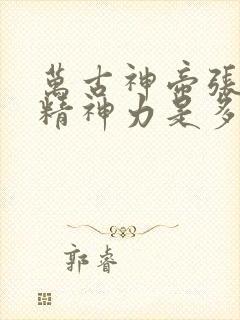 萬古神帝張
精神力是多
郭睿